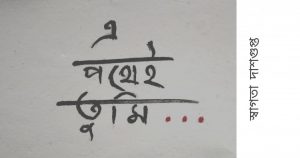 এ
পথেই
তুমি...
স্বাগতা দাশগুপ্ত